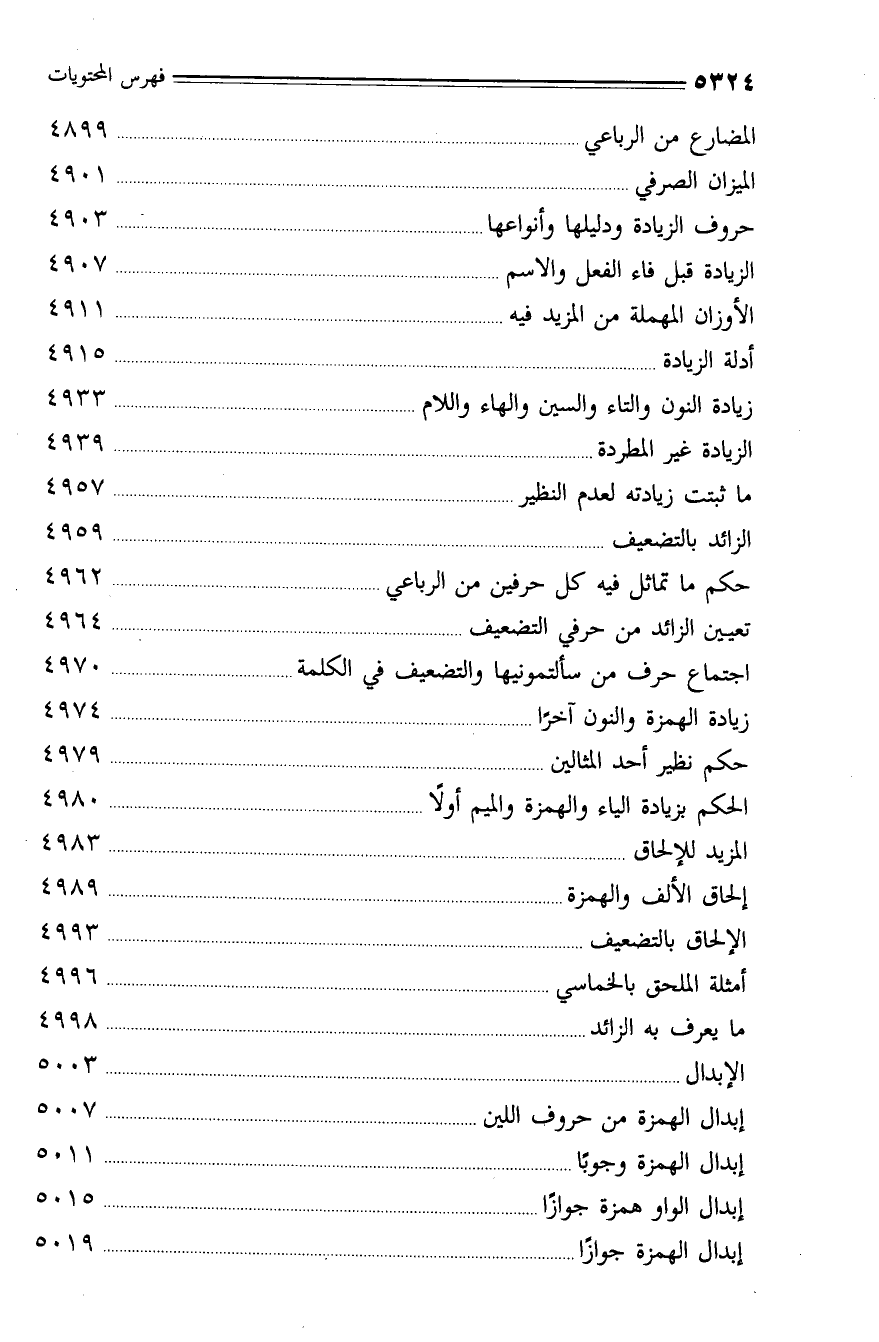 ٥٣٢٤ فهرس المحتويات
المضارع من الرباعي ٤٨٩٩
الميزان الصرفي ٤٩٠١
حروف الزيادة ودليلها وأنواعها ٤٩٠٣
الزيادة قبل فاء الفعل والاسم ٤٩٠٧
الأوزان المهملة من المزيد فيه ٤٩١١
أدلة الزيادة ٤٩١٥
زيادة النون والتاء والسين والهاء واللام ٤٩٣٣
الزيادة غير المطردة ٤٩٣٩
ما ثبتت زيادته لعدم النظير ٤٩٥٧
الزائد بالتضعيف ٤٩٥٩
حكم ما تماثل فيه كل حرفين من الرباعي ٤٩٦٢
تعيين الزائد من حرفي التضعيف ٤٩٦٤
اجتماع حرف من سألتمونيها والتضعيف في الكلمة ٤٩٧٠
زيادة الهمزة والنون آخرًا ٤٩٧٤
حكم نظير أحد المثالين ٤٩٧٩
الحكم بزيادة الياء والهمزة والميم أولًا ٤٩٨٠
المزيد للإلحاق ٤٩٨٣
إلحاق الألف والهمزة ٤٩٨٩
الإلحاق بالتضعيف ٤٩٩٣
أمثلة الملحق بالخماسي ٤٩٩٦
ما يعرف به الزائد ٤٩٩٨
الإبدال ٥٠٠٣
إبدال الهمزة من حروف اللين ٥٠٠٧
إبدال الهمزة وجوبًا ٥٠١١
إبدال الواو همزة جوازًا ٥٠١٥
إبدال الهمزة جوازًا ٥٠١٩